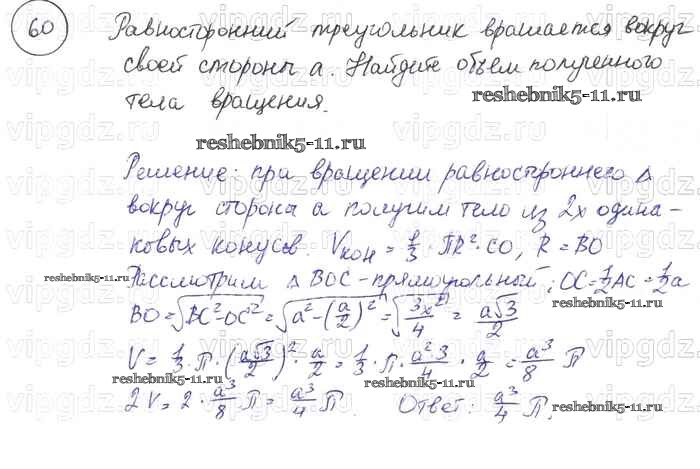 60 Равносторонний треугольник вращается вокруг
своей стороны a. Найдите объем полученного
reshebnik5-11.ru
тела вращения.
reshebnik5-11.ru
Решение: при вращении равностороннего Δ
вокруг стороны a получим тело из 2х одина-
ковых конусов. Vкон = 1/3 · ПR² · CO, R = BO
reshebnik5-11.ru
Рассмотрим Δ BOC - прямоугольный; OC = 1/2 AC = 1/2 a
BO = √(BC² - OC²) = √(a² - (a/2)²) = √(3x²/4) = a√3/2
reshebnik5-11.ru
V = 1/3 · П · (a√3/2)² · a/2 = 1/3 · П · a²·3/4 · a/2 = a³/8 П
reshebnik5-11.ru
reshebnik5-11.ru
2V = 2 · a³/8 П = a³/4 П. Ответ: a³/4 П.
reshebnik5-11.ru
vipgdz.ru